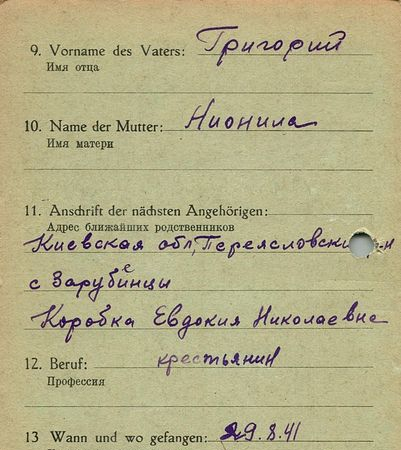 9. Vorname des Vaters: Григорий
Имя отца
10. Name der Mutter: Нионила
Имя матери
11. Anschrift der nächsten Angehörigen:
Адрес ближайших родственников
Киевская обл, Переясловский р-н
с Зарубенцы
Коробка Евдокия Николаевна
12. Beruf: крестьянин
Профессия
13 Wann und wo gefangen: 29.8.41